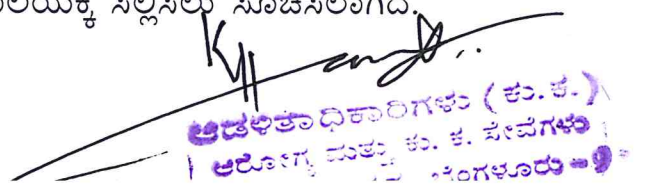 ಸಲ್ಲಿಸಲು ಸೂಚಿಸಲಾಗಿದೆ.
ಆಡಳಿತಾಧಿಕಾರಿಗಳು (ಕು. ಕ.)
ಆರೋಗ್ಯ ಮತ್ತು ಕು. ಕ. ಸೇವೆಗಳು
ಬೆಂಗಳೂರು-9.